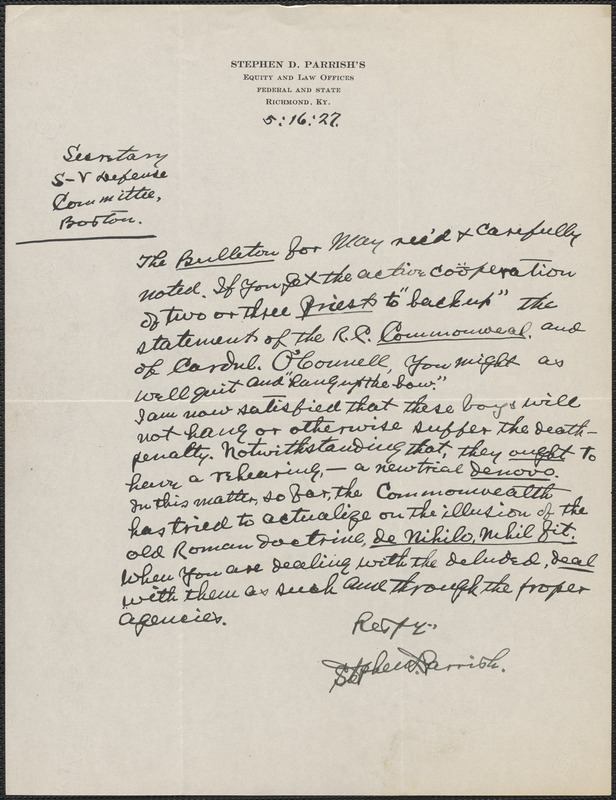 STEPHEN D. PARRISH'S
EQUITY AND LAW OFFICES
FEDERAL AND STATE
RICHMOND, KY.
5:16:27.
Secretary
S-V Defense
Committee,
Boston.
The Bulleton for May rec'd & carefully
noted. If You get the active coöperation
of two or three Priests to "back up" the
statement of the R.C. Commonweal. and
of Cardnl. O'Connell, You might as
well quit and "hang up the bow."
I am now satisfied that these boys will
not hang or otherwise suffer the death-
penalty. Notwithstanding that, they ought to
have a rehearing, — a new trial denovo.
In this matter, so far, the Commonwealth
has tried to actualize on the illusion of the
old Roman doctrine, de Nihilo, Nihil fit.
When You are dealing with the deluded, deal
with them as such and through the proper
agencies.
Resp'y
Stephen D. Parrish.